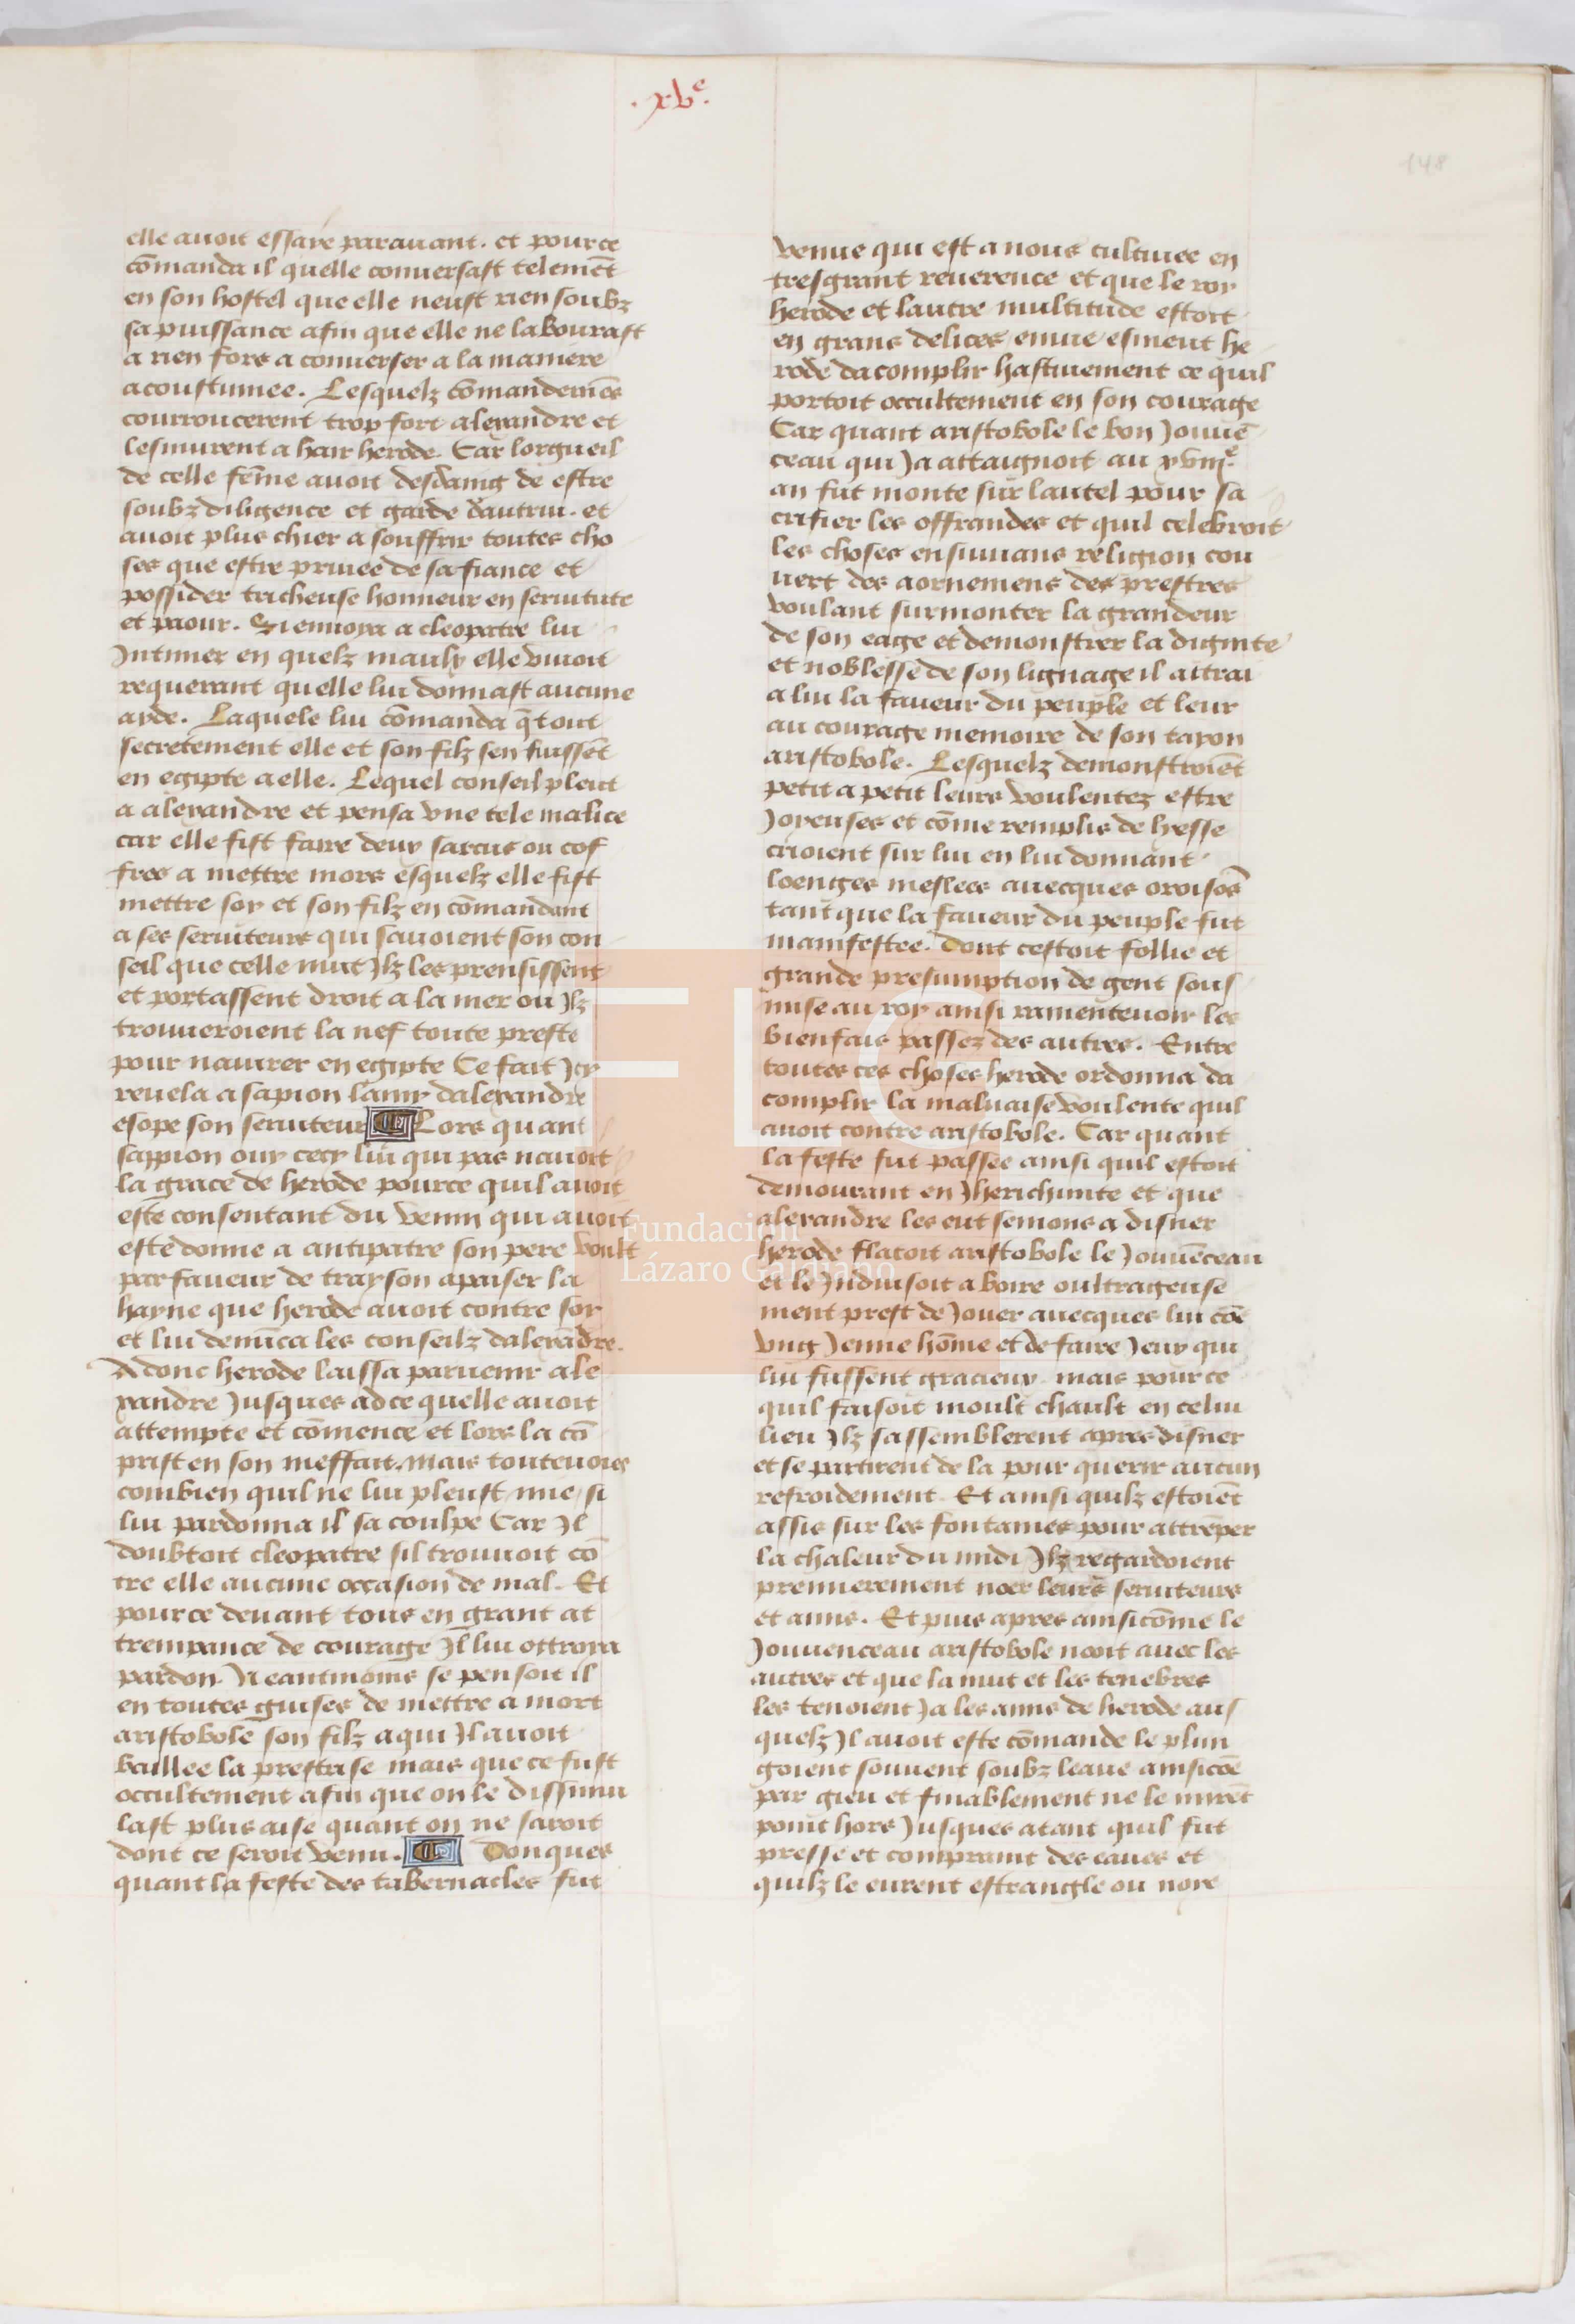 .xve.
148
elle auoit essaye parauant. et pource
cōmanda il quelle conuersast telemēt
en son hostel que elle neust rien soubz
sa puissance afin que elle ne labourast
a rien fors a conuerser a la maniere
acoustumee. Lesquelz cōmandemēs
courroucerent trop fort alexandre et
lesmurent a hair herode. Car lorgueil
de celle fēme auoit desdaing de estre
soubz diligence et garde dautrui. et
auoit plus chier a souffrir toutes cho
ses que estre priuee de sa fiance et
possider tricheuse honneur en seruitute
et paour. Si enuoya a cleopatre lui
Intimer en quelz maulx elle viuoit
requerant quelle lui donnast aucune
ayde. Laquele lui cōmanda q̄ tout
secretement elle et son filz sen fuissēt
en egipte a elle. Lequel conseil pleut
a alexandre et pensa vne tele malice
car elle fist faire deux sarcus ou cof
fres a mettre mors esquelz elle fist
mettre soy et son filz en cōmandant
a ses seruiteurs qui sauoient son con
seil que celle nuit Ilz les prensissent
et portassent droit a la mer ou Ilz
trouueroient la nef toute preste
pour nauirer en egipte Ce fait Icy
reuela a sapion lamy dalexandre
esope son seruiteur Lors quant
sappion ouy cecy lui qui pas nauoit
la grace de herode pource quil auoit
este consentant du venin qui auoit
este donne a antipatre son pere voult
par faueur de trayson apaiser la
hayne que herode auoit contre soy
et lui denūca les conseilz dalexādre.
Adonc herode laissa paruenir ale
xandre Jusques ad ce quelle auoit
attempte et cōmence et lors la cō
prist en son meffait. mais touteuoies
combien quil ne lui pleust mie si
lui pardonna il sa coulpe Car Il
doubtoit cleopatre sil trouuoit cō
tre elle aucune occasion de mal. Et
pource deuant tous en grant at
trempance de courage Il lui ottroya
pardon. Neantmoins se pensoit il
en toutes guises de mettre a mort
aristobole son filz a qui Il auoit
baillee la prestrise mais que ce fust
occultement afin que on le dissimu
last plus aise quant on ne saroit
dont ce seroit venu. Donques
quant la feste des tabernacles fut
venue qui est a nous cultiuee en
tresgrant reuerence et que le roy
herode et lautre multitude estoit
en grans delices enuie esmeut he
rode dacomplir hastiuement ce quil
portoit occultement en son courage
Car quant aristobole le bon Jouuē
ceau qui Ja attaignoit au xviije
an fut monte sur lautel pour sa
crifier les offrandes et quil celebroit
les choses ensuiuans religion cou
uert des aornemens des prestres
voulant surmonter la grandeur
de son eage et demonstrer la dignite
et noblesse de son lignage il attrai
a lui la faueur du peuple et leur
au courage memoire de son tayon
aristobole. Lesquelz demonstroiēt
petit a petit leurs voulentez estre
Joyeuses et cōme remplis de liesse
crioient sur lui en lui donnant
loenges meslees auecques oroisōs
tant que la faueur du peuple fut
manifestee. dont cestoit follie et
grande presumption de gent sous
mise au roy ainsi ramenteuoir les
bienfais passez des autres. Entre
toutes ces choses herode ordonna da
complir la maluaise voulente quil
auoit contre aristobole. Car quant
la feste fut passee ainsi quil estoit
demourant en Iherichunte et que
alexandre les eut semons a disner
herode flatoit aristobole le Jouuēceau
et le Induisoit a boire oultrageuse
ment prest de Jouer auecques lui cōe
vng Jenne hōme et de faire Jeux qui
lui fussent gracieux. mais pource
quil faisoit moult chault en celui
lieu Ilz sassemblerent apres disner
et se partirent de la pour querir aucun
refroidement. Et ainsi quilz estoiēt
assis sur les fontaines pour attrēper
la chaleur du midi Ilz regardoient
premierement noer leurs seruiteurs
et amis. Et puis apres ainsi cōme le
Jouuenceau aristobole nooit auec les
autres et que la nuit et les tenebres
les tenoient Ja les amis de herode aus
quelz Il auoit este cōmande le plun
goient souuent soubz leaue ainsi cōe
par gieu et finablement ne le mirēt
point hors Jusques a tant quil fut
presse et compraint des eaues et
quilz le eurent estrangle ou noye
Fundación
Lázaro Galdiano